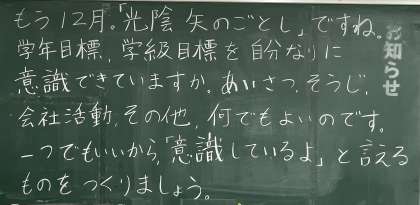 もう12月。「光陰矢のごとし」ですね。
学年目標、学級目標を自分なりに
意識できていますか。あいさつ、そうじ、
会社活動、その他、何でもよいのです。
一つでもいいから、「意識しているよ」と言える
ものをつくりましょう。
お知らせ